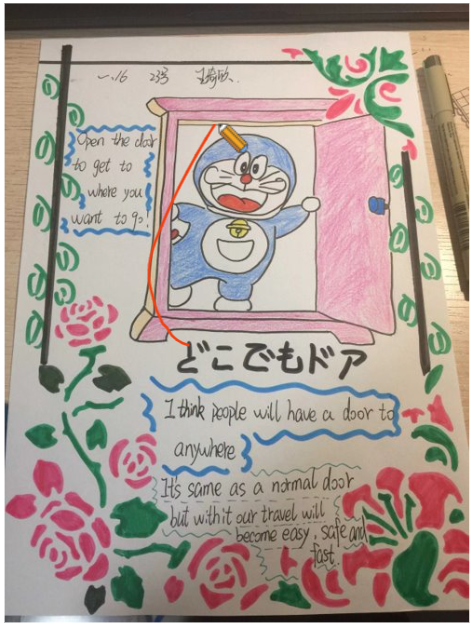 一.16 23号
Open the door
to get to
where you
want to go!
どこでもドア
I think people will have a door to
anywhere
It's same as a normal door
but with it our travel will
become easy safe and
fast.